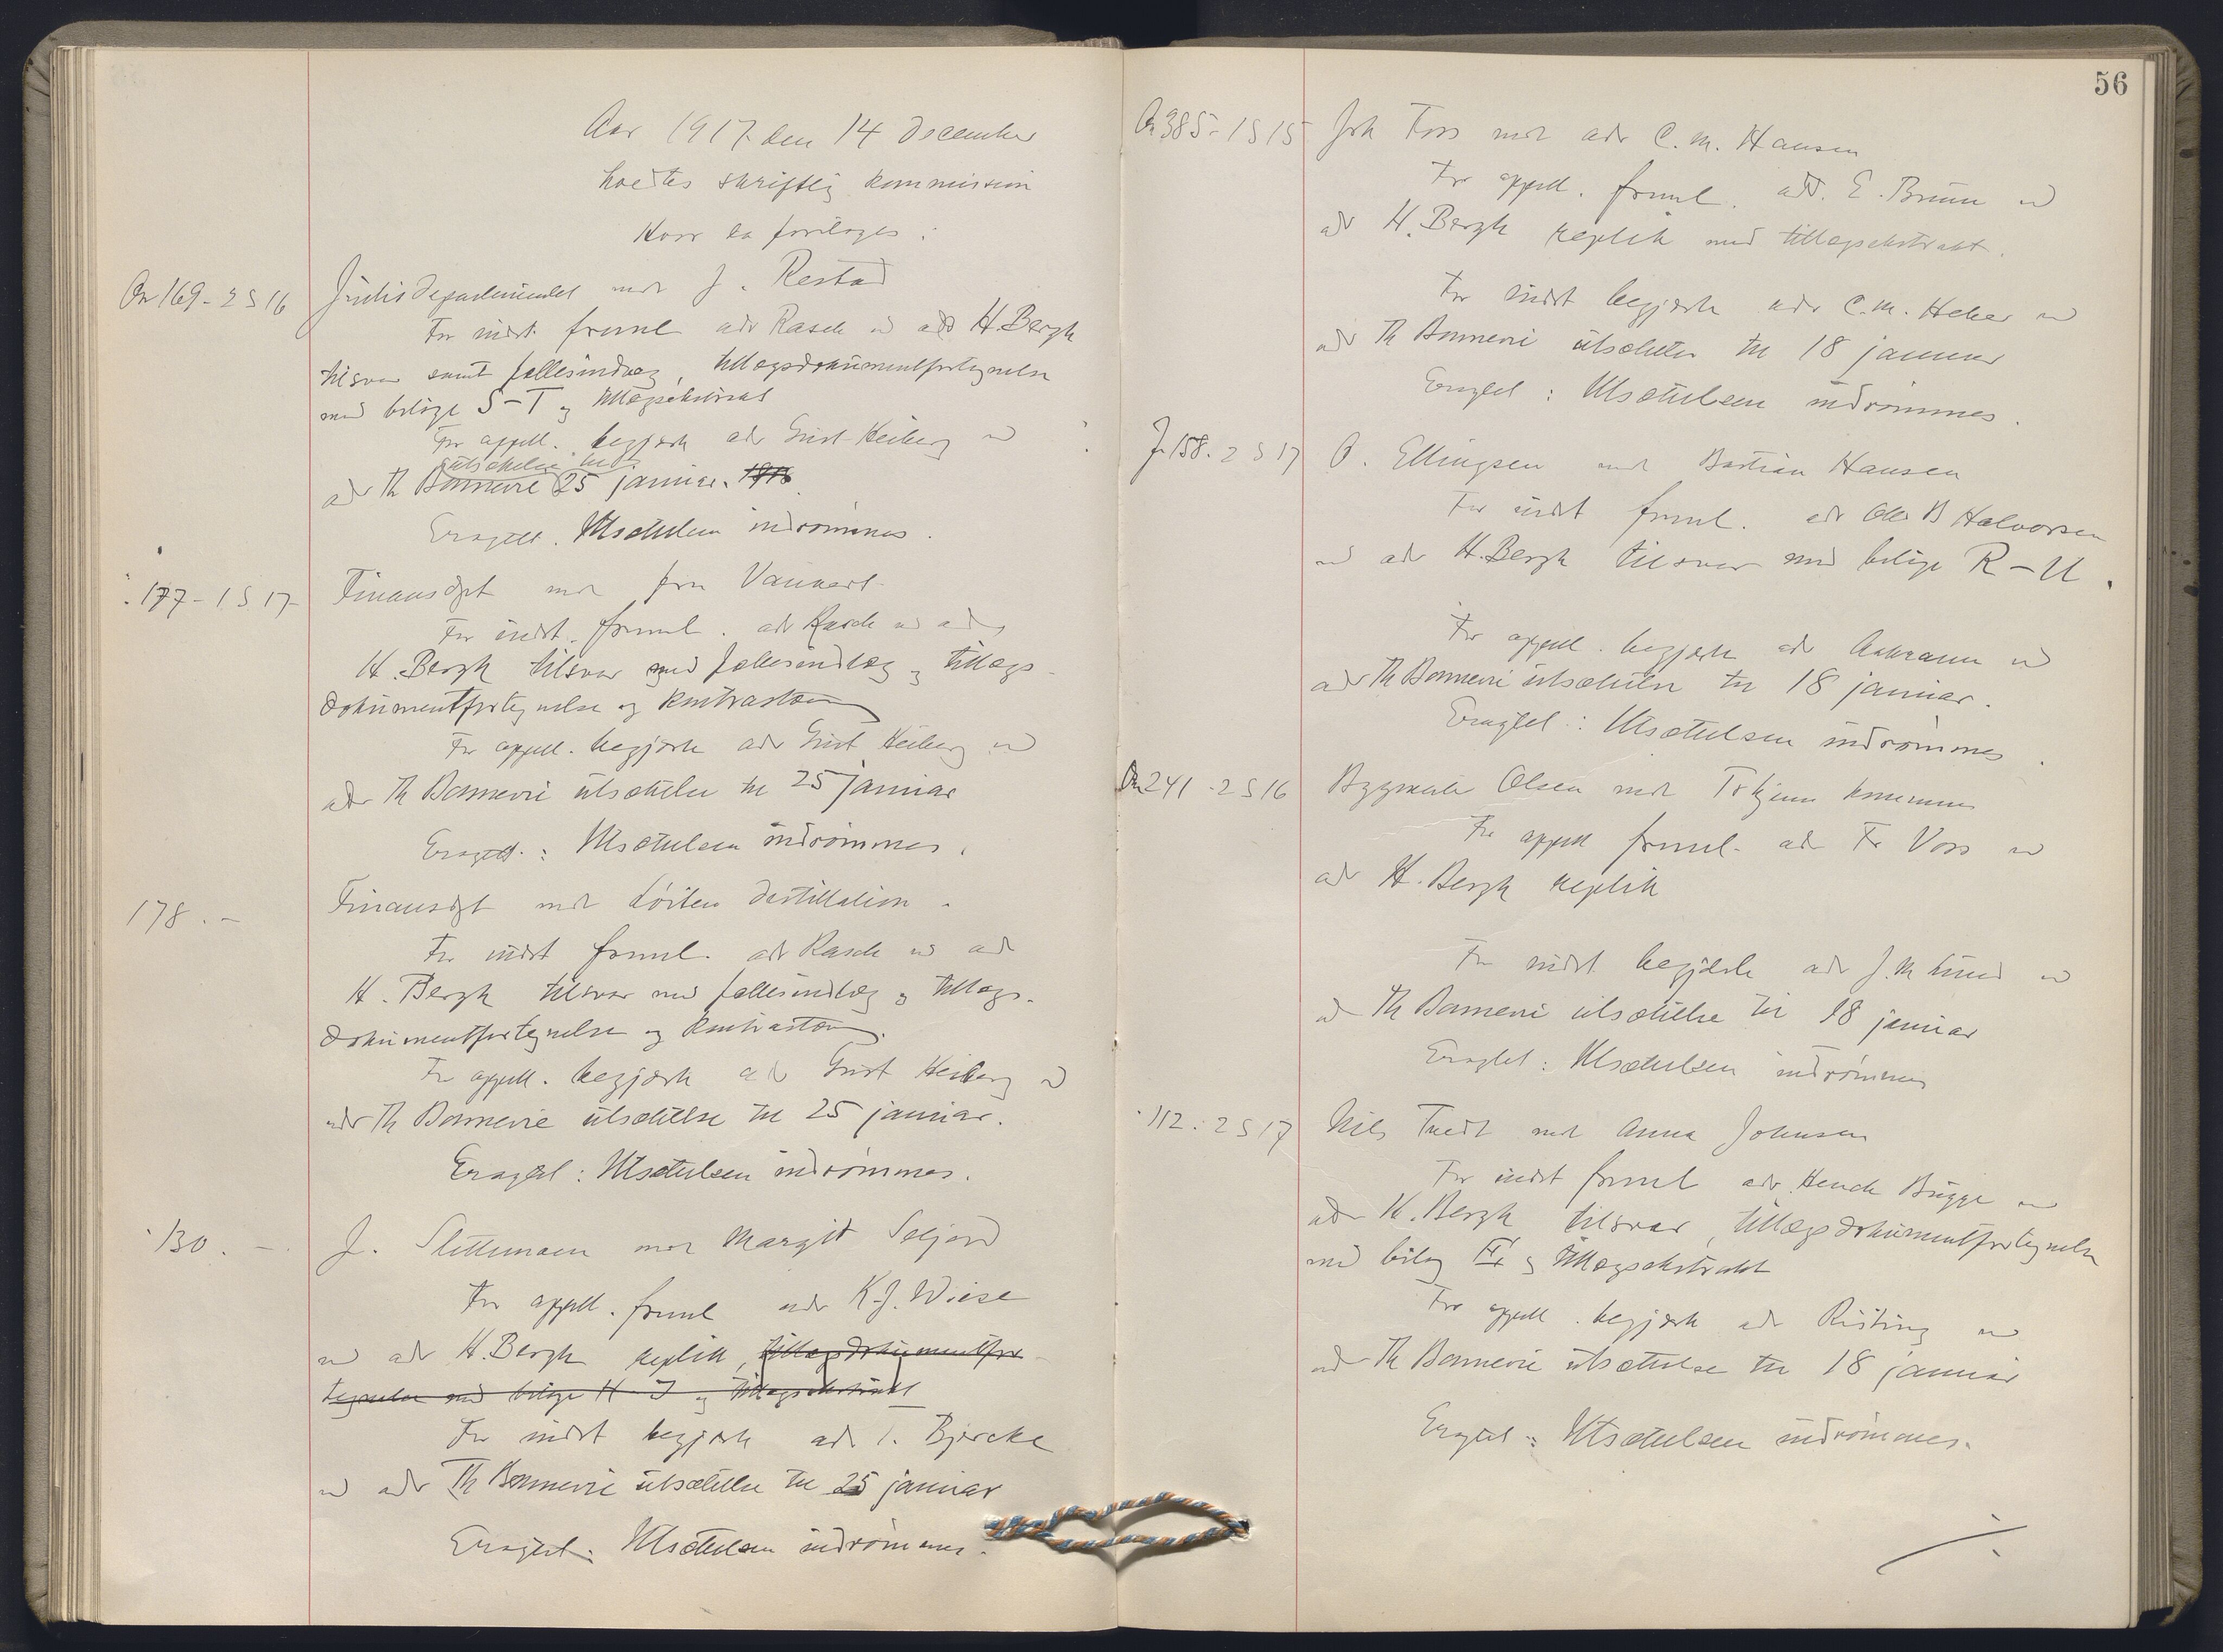 Aar 1917 den 14 December
holdtes skriftlig kommission
Hvor da foretoges:
An 169 - 2 S 16 Justisdepartementet mot J. Restad
For indst. freml adv Rasch ved adv H. Bergh
tilsvar samt fællesindlæg, tillægsdokumentfortegnelse
med bilage S-T og tillægsekstrakt
For appell. begjærte adv Gust Heiberg ved
utsættelse til
adv Th Bonnevie 25 januar. 1918
Eragtet. Utsættelsen indrømmes.
177 - 1 S 17 Finansdpt mot fru Vauvert
For indst. freml. adv Rasch ved adv
H. Bergh tilsvar med fællesindlæg og tillægs-
dokumentfortegnelse og kontrastævn
For appell. begjærte adv Gust Heiberg ved
adv Th Bonnevie utsættelse til 25 januar
Eragtet: Utsættelsen indrømmes.
178. - Finansdpt mot Løiten Destillation.
For indst freml. adv Rasch ved adv
H. Bergh tilsvar med fællesindlæg og tillægs-
dokumentfortegnelse og kontrastævn.
For appell. begjærte adv Gust Heiberg ved
adv Th Bonnevie utsættelse til 25 januar.
Eragtet: Utsættelsen indrømmes.
130. - J. Slettemoen mot Margit Seljord
For appell. freml adv K. J. Wiese
ved adv H. Bergh replik, tillægsdokumentfor-
tegnelse med bilage H-J og tillægsekstrakt
For indst begjærte adv I. Bjercke
ved adv Th Bonnevie utsættelse til 25 januar
Eragtet: Utsættelsen indrømmes.
56
An 385 - 1 S 15 Joh Foss mot adv C. M. Hansen
For appell. freml. adv. E. Bruun ved
adv H. Bergh replik med tillægsekstrakt.
For indst begjærte adv C. M. Heber ved
adv Th Bonnevie utsættelse til 18 januar
Eragtet: Utsættelsen indrømmes.
J. 158. 2 S 17 O. Ellingsen mot Bastian Hansen
For indst freml. adv Ole B Halvorsen
ved adv H. Bergh tilsvar med bilage R-U.
For appell. begjærte adv ved
adv Th Bonnevie utsættelse til 18 januar.
Eragtet: Utsættelsen indrømmes.
An 241 - 2 S 16 Bygmester Olsen mot kommune
For appell freml. adv Fr Voss ved
adv H. Bergh replik
For indst begjærte adv J. M Lund ved
adv Th Bonnevie utsættelse til 18 januar
Eragtet: Utsættelsen indrømmes
112. 2 S 17 Nils Tvedt mot Anna Johnsen
For indst freml adv Bugge ved
adv H. Bergh tilsvar, tillægsdokumentfortegnelse
med bilag og tillægsekstrakt
For appell. begjærte adv Risting ved
adv Th Bonnevie utsættelse til 18 januar
Eragtet: Utsættelsen indrømmes.